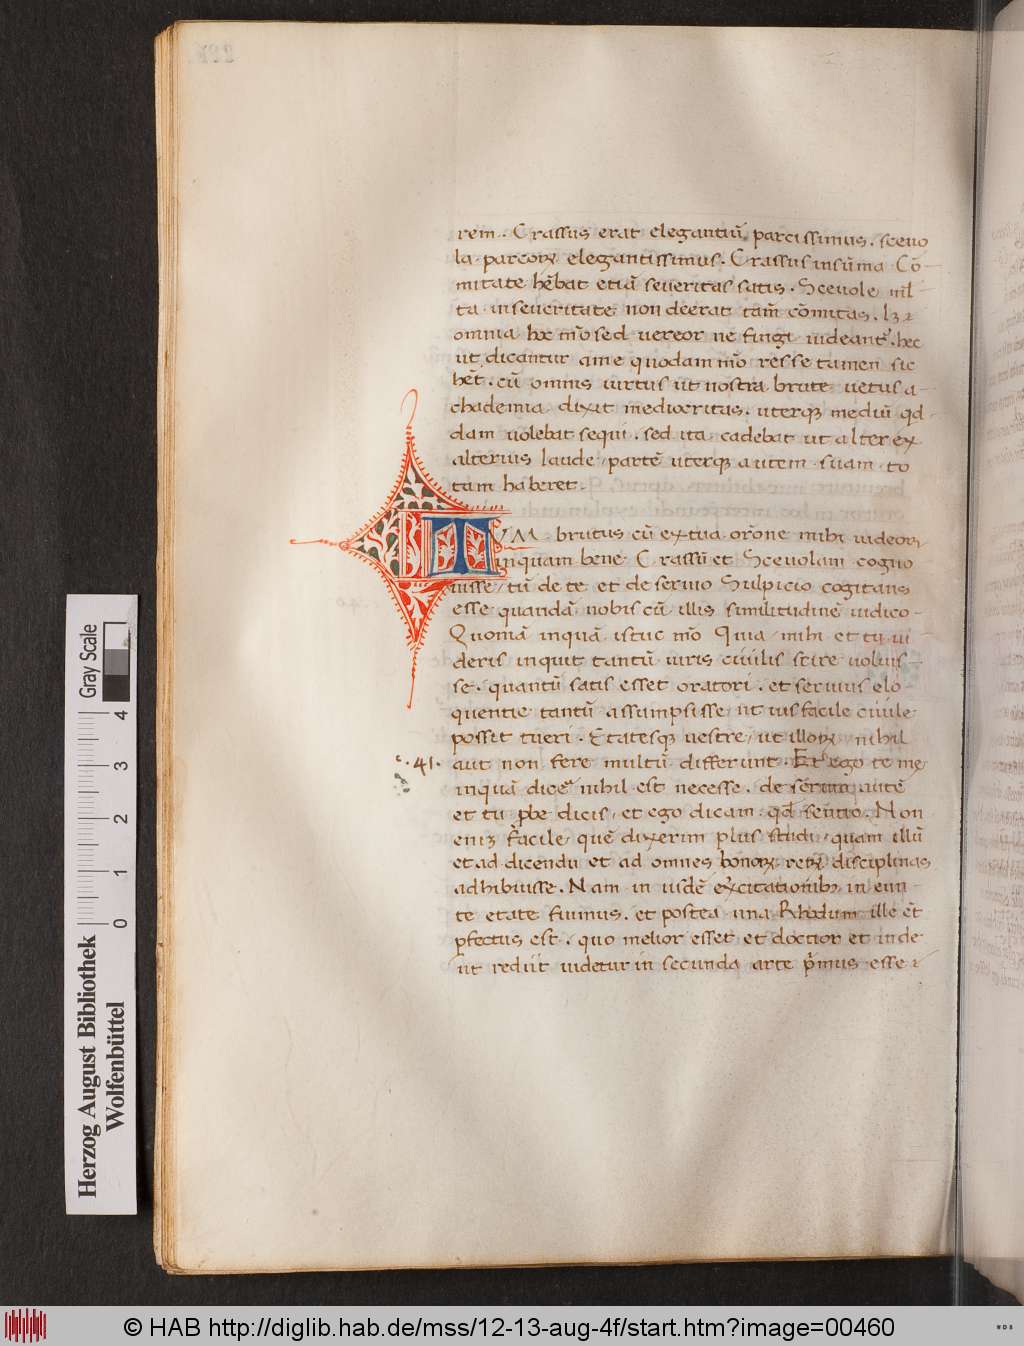 rem. Crassus erat elegantiū parcissimus. sceuo
la parcorꝝ elegantissimus. Crassus in sūma Cō-
mitate hēbat etiā seueritas satis. Sceuole ml̄-
ta in seueritate non deerat tam̄ cōmitas. lꝫ
omnia hoc mō sed uereor ne fingi uideant᷑. hec
ut dicantur a me quodam mō res se tamen sic
hēt. cū omnis uirtus ut nostra brute uetus a-
chademia dixit mediocritas. uterqꝫ mediū qd̄-
dam uolebat sequi. sed ita cadebat ut alter ex
alterius laude partē uterqꝫ autem suam to
tam haberet.
TVM brutus cū ex tua orōne mihi uideorꝛ
inquam bene Crassū et Sceuolam cogno
uisse/ tū de te et de seruio Sulpicio cogitans
esse quandā nobis cū illis similitudinē iudico-
Quoniā inquā istuc mō Quia mihi et tu ui
deris inquit tantū iuris ciuilis scire uoluis-
se. quantū satis esset oratori. et seruius elo-
quentie tantū assumpsisse ut ius facile ciuile
posset tueri. Etatesqꝫ uestre/ ut illorꝝ nihil
c. 41. aut non fere multū differunt. Et ego te me
inquā dicere nihil est necesse. de seruio autē
et tu ꝓbe dicis/ et ego dicam qd̄ sentio. Non
enīꝫ facile quē dixerim plus studii quam illū
et ad dicendū et ad omnes bonorꝝ rerꝝ disciplinas
adhibuisse. Nam in iisdē exercitationibꝫ in eun-
te etate fuimus. et postea una Rhodum ille ēt
ꝑfectus est. quo melior esset et doctior et inde
ut rediit uidetur in secunda arte pꝛimus esse
Herzog August Bibliothek
Wolfenbüttel
0 1 2 3 4
Gray Scale
© HAB http://diglib.hab.de/mss/12-13-aug-4f/start.htm?image=00460